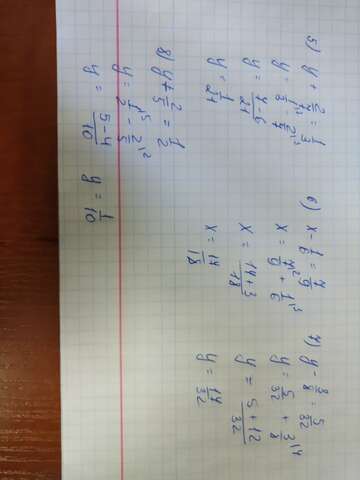 5) y + 2/7 = 1/3
y = 1/3 ^7 - 2/7 ^3
y = (7-6)/21
y = 1/21
6) x - 1/6 = 7/9
x = 7/9 ^2 + 1/6 ^3
x = (14+3)/18
x = 17/18
7) y - 3/8 = 5/32
y = 5/32 + 3/8 ^4
y = (5+12)/32
y = 17/32
8) y + 2/5 = 1/2
y = 1/2 ^5 - 2/5 ^2
y = (5-4)/10
y = 1/10